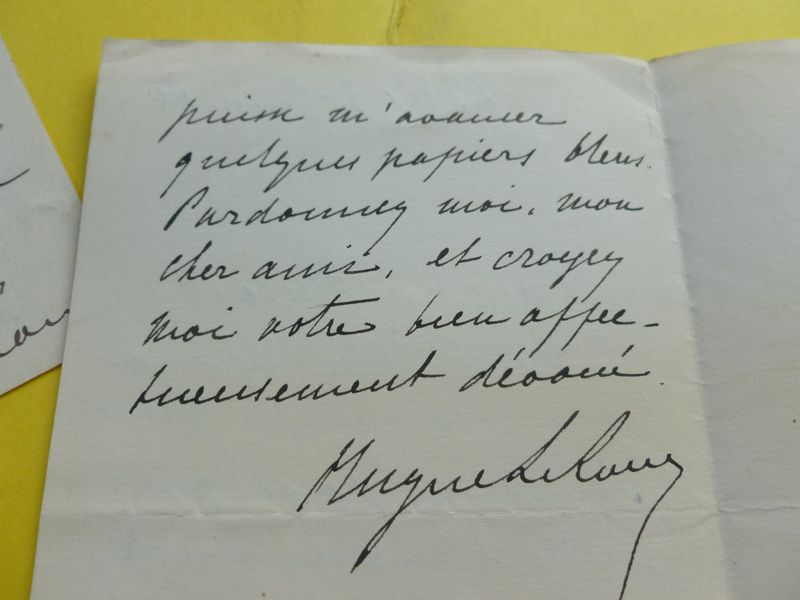 puisse m'avancer
quelques papiers bleus.
Pardonnez moi, mon
cher ami, et croyez
moi votre bien affec-
tueusement dévoué.
Hugues Le Roux